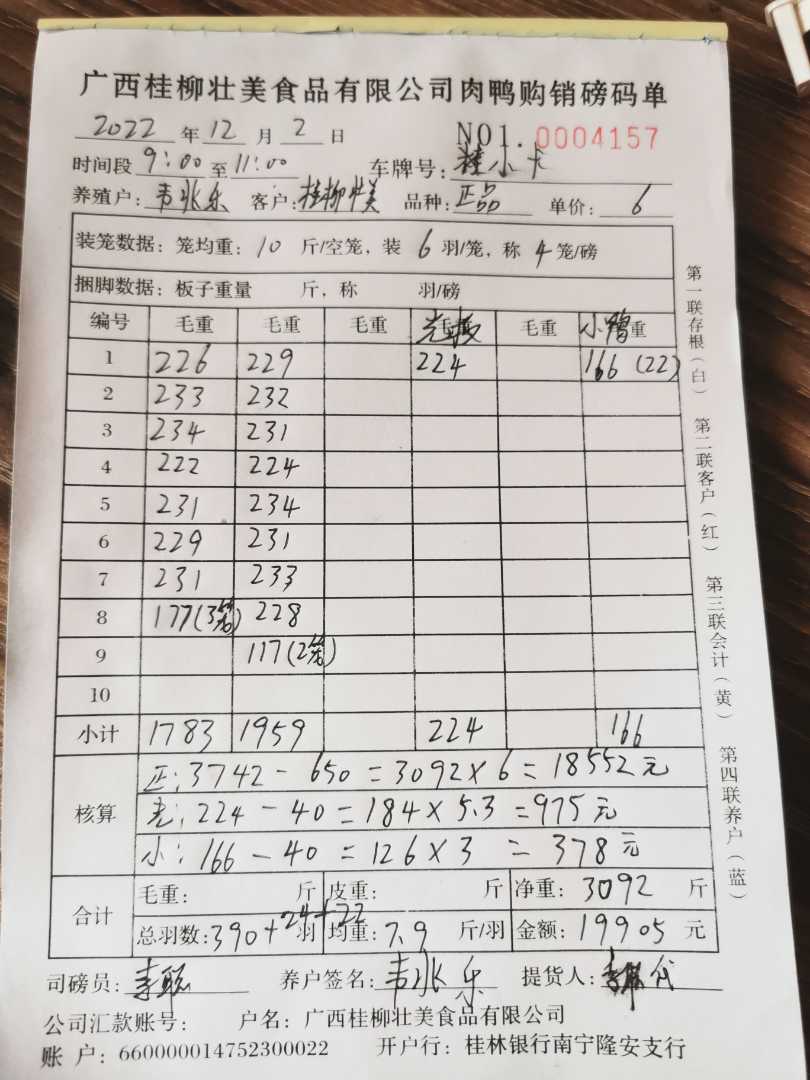 广西桂柳壮美食品有限公司肉鸭购销磅码单
2022 年 12 月 2 日 NO1. 0004157
时间段 9:00 至 11:00 车牌号: 桂小卡
养殖户: 韦兆乐 客户: 桂柳壮美 品种: 正品 单价: 6
装笼数据: 笼均重: 10 斤/空笼, 装 6 羽/笼, 称 4 笼/磅
捆脚数据: 板子重量 斤, 称 羽/磅
编号 毛重 毛重 毛重 光板 毛重 小鸭重
1 226 229 224 166 (22)
2 233 232
3 234 231
4 222 224
5 231 234
6 229 231
7 231 233
8 177(3笼) 228
9 117(2笼)
10
小计 1783 1959 224 166
核算
正: 3742 - 650 = 3092 × 6 = 18552 元
光: 224 - 40 = 184 × 5.3 = 975 元
小: 166 - 40 = 126 × 3 = 378 元
合计
毛重: 斤 皮重: 斤 净重: 3092 斤
总羽数: 390+24+22 羽 均重: 7.9 斤/羽 金额: 19905 元
司磅员: 李聪 养户签名: 韦兆乐 提货人: 代
公司汇款账号: 户名: 广西桂柳壮美食品有限公司
账 户: 660000014752300022 开户行: 桂林银行南宁隆安支行
第一联存根(白)
第二联客户(红)
第三联会计(黄)
第四联养户(蓝)